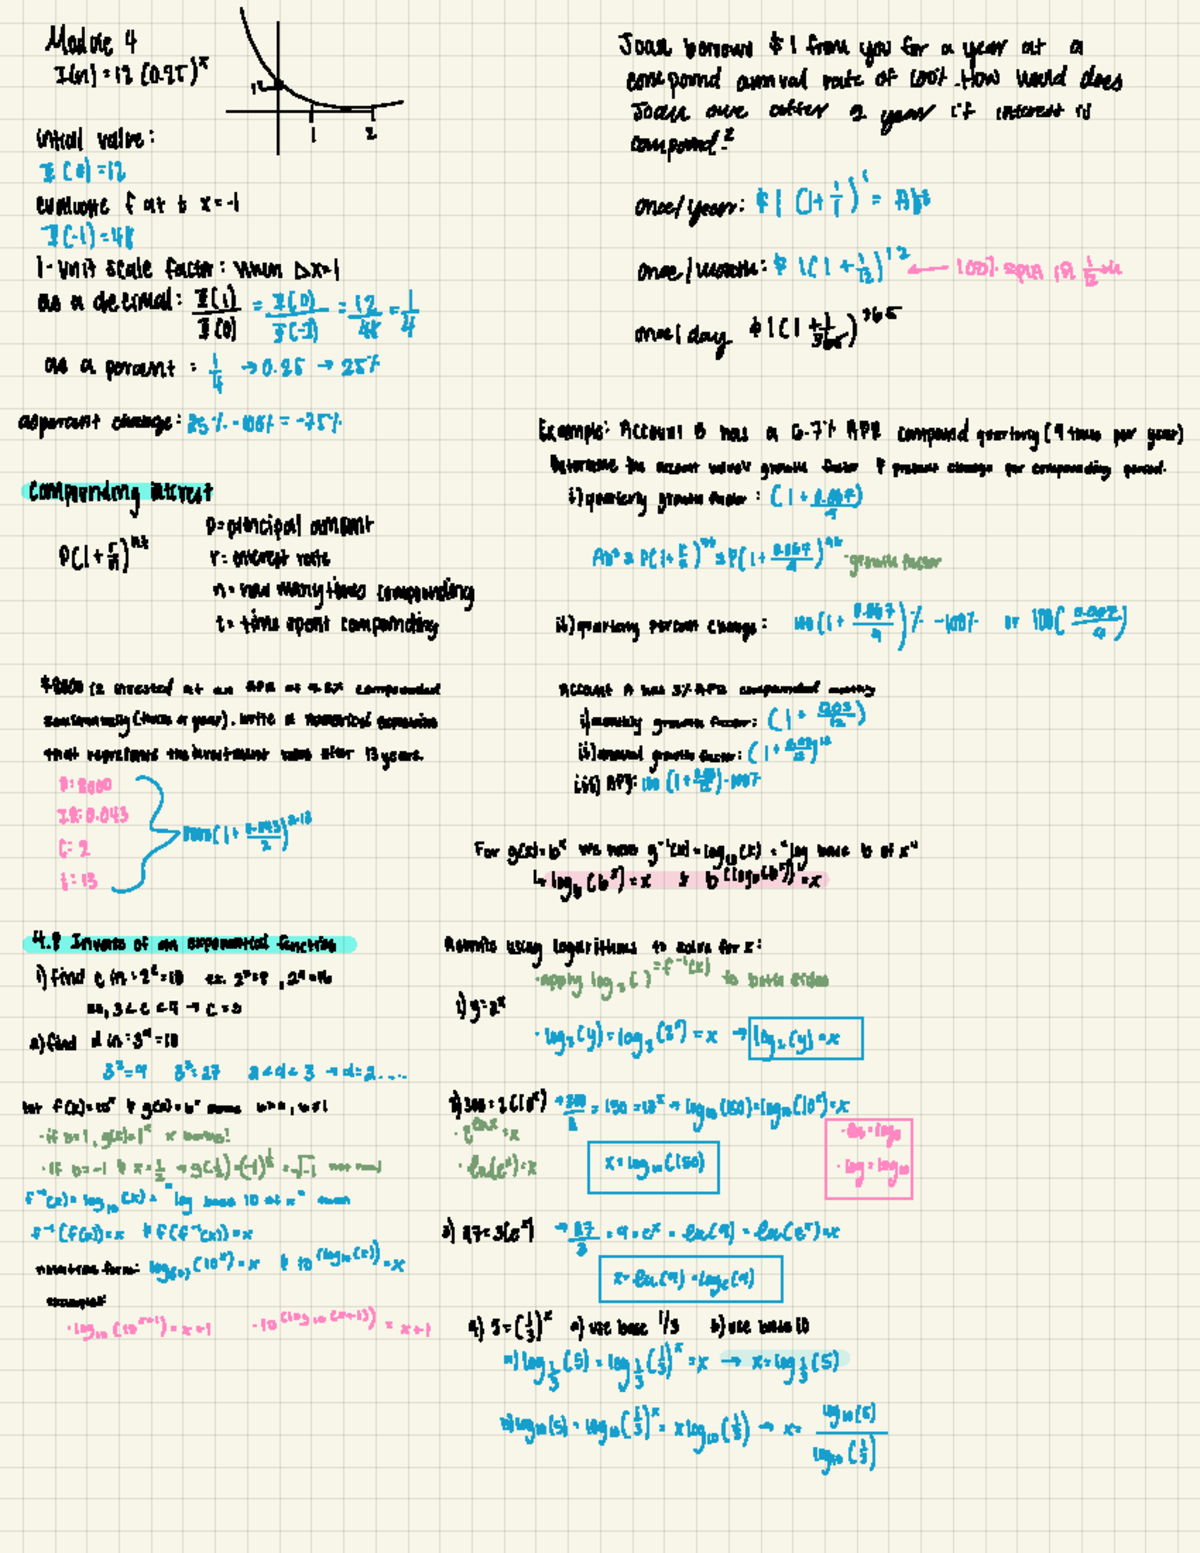 Module 4
I(n) = 12 (0.25)^x
1 2
initial value:
I(0) = 12
evaluate f at to x=-1
I(-1) = 48
1-unit scale factor: when Δx=1
as a decimal: I(1)/I(0) = I(0)/I(-1) = 12/48 = 1/4
as a percent: 1/4 → 0.25 → 25%
as percent change: 25% - 100% = -75%
compounding interest
P(1+r/n)^nt
P=principal amount
r= interest rate
n= how many times compounding
t= time spent compounding
$8000 is invested at an APR at 4.3% compounded
semiannually (twice a year). write a numerical expression
that represents the investment value after 13 years.
2: 0.043
C= 2
t= 13
(1 + 0.043/2)^2·13
4.8 Inverse of an exponential function
1) find c in: 2^c=10 ex. 2^3=8, 2^4=16
so, 3<c<4 → c=3
2) find d in: 3^d=10
3^2=9 3^3=27 2<d<3 → d=2....
let f(x)=10^x & g(x)=b^x
·if b=1, g(x)=1^x
·if b=-1 & x=1/2 → g(1/2)=(-1)^1/2 = √-1 not real
f^-1(x)= log10(x)= "log base 10 of x"
f^-1(f(x))=x & f(f^-1(x))=x
form: (10^x)=x & 10^(log10(x))=x
examples:
·log10(10^x+1)=x+1
Joan borrows $1 from you for a year at a
compound annual rate of 100%. How would does
Joan owe after 1 year if interest is
compound?
once/year: $1 (1+1/1)^1 = Ab^x
once/month: $1(1+1/12)^12 ← 100%
once/day $1(1+1/365)^365
Example: Account B has a 6.7% APR compound quarterly (4 times per year)
Determine the account value's growth factor & percent change per compounding period.
i) quarterly growth factor: (1+0.067/4)
Ab^x = P(1+r/n)^nt = P(1+0.067/4)^4t ·growth factor
ii) quarterly percent change: 100(1+0.067/4)% -100% or 100(0.067/4)
Account A has 3% APR compounded monthly
i) monthly growth factor: (1+0.03/12)
ii) annual growth factor: (1+0.03/12)^12
iii) APY: 100(1+0.03/12)-100%
For g(x)=b^x we have g^-1(x)= (x) = "log base b of x"
↳ logb(b^x)=x & b^(logb(b^x))=x
Rewrite using logarithms to solve for x:
·apply log2( )=f^-1(x) to both sides
1) y=2^x
·log2(y)=log2(2^x)=x → log2(y)=x
2) 300=2(10^x) →300/2=150=10^x → log10(150)=log10(10^x)=x
·e^lnx=x
·ln(e^x)=x
x=log10(150)
·ln=loge
·log=log10
3) 27=3(e^x) →27/3=9=e^x = ln(9)=ln(e^x)=x
x=ln(9)=loge(9)
4) 5=(1/3)^x a) use base 1/3 b) use base 10
a) log1/3(5)=log1/3(1/3)^x=x → x=log1/3(5)
b) log10(5)=log10(1/3)^x= x log10(1/3) → x= log10(5)/log10(1/3)